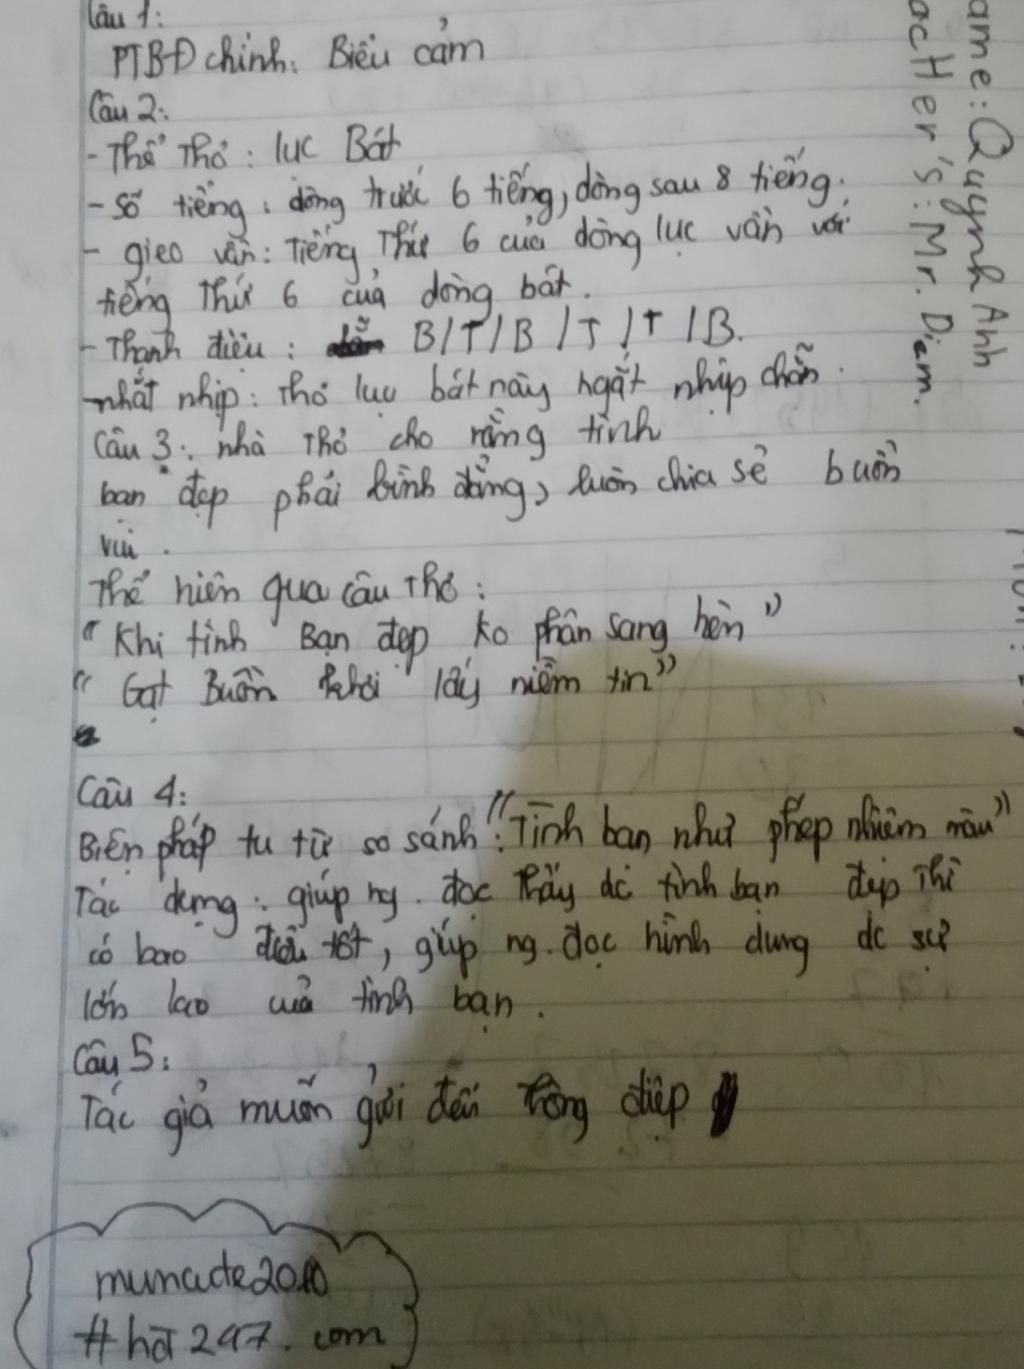 Câu 1:
PTBĐ chính: Biểu cảm
Câu 2:
- Thể Thơ: lục Bát
- Số tiếng: dòng trước 6 tiếng, dòng sau 8 tiếng.
- gieo vần: Tiếng Thứ 6 của dòng lục vần với
tiếng Thứ 6 của dòng bát.
- Thanh điệu: B/T/B/T/T/B.
- nhắt nhịp: Thơ lục bát này ngắt nhịp chẵn.
Câu 3: nhà Thơ cho rằng tình
bạn đẹp phải bình đẳng, luôn chia sẻ buồn
vui.
Thể hiện qua câu Thơ:
"Khi tình Bạn đẹp ko phân sang hèn"
"Gạt Buồn khơi lấy niềm tin"
Câu 4:
Biện pháp tu từ so sánh: "Tình bạn như phép nhiệm màu"
Tác dụng: giúp ng. đọc Thấy dc tình bạn đẹp Thì
có bao điều tốt, giúp ng. đọc hình dung dc sự
lớn lao của tình bạn.
Câu 5:
Tác giả muốn gửi đến Thông điệp
ame: Quỳnh Anh
acHer's: Mr. Diem.
#hoi247.com